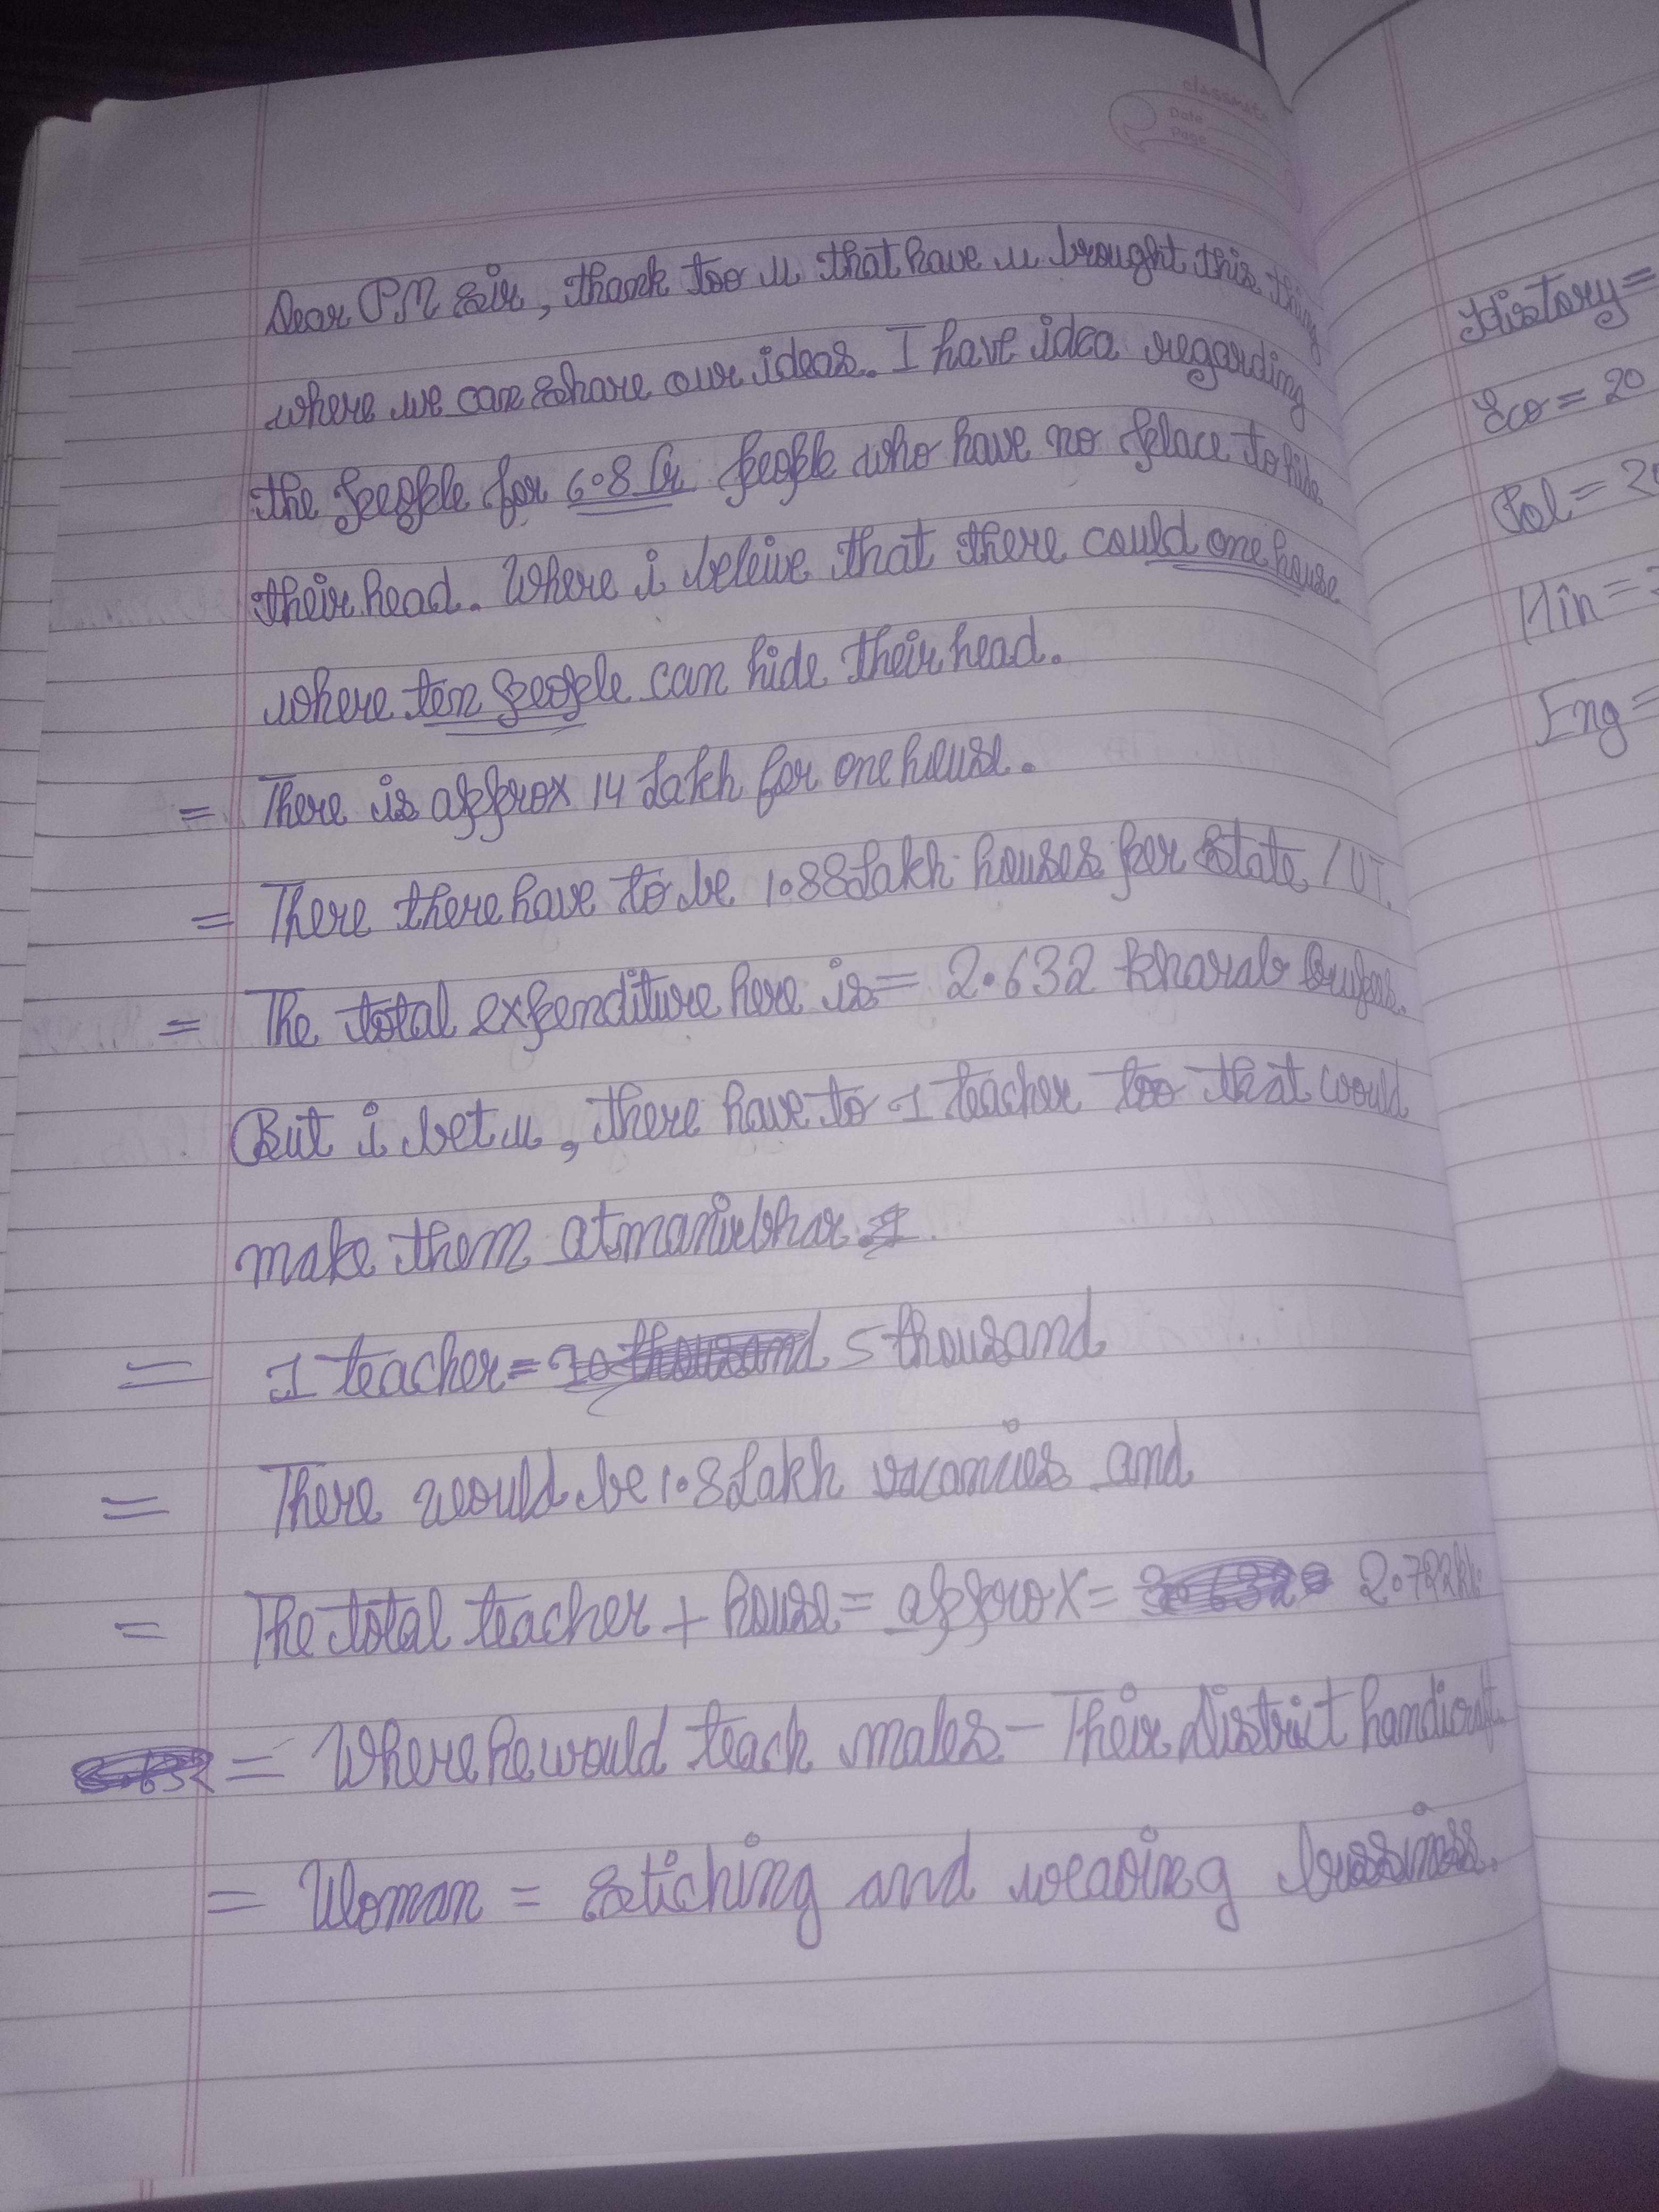 classmate
Date
Page
Dear PM sir, thank too u that have u brought this thing
where we can share our ideas. I have idea regarding
the people for 6.8 Cr people who have no place to hide
their head. Where i beleive that there could one house
where ten people can hide their head.
= There is approx 14 Lakh for one house.
= There there have to be 1.88 Lakh houses per state / UT.
= The total expenditure here is = 2.632 kharab Rupas.
But i bet u, there have to 1 teacher too that would
make them atmanirbhar.
= 1 teacher = 10 thousand 5 thousand
= There would be 1.8 Lakh vacanies and
= The total teacher + house = approx = 2.722kh.
= Where he would teach males - Their District handicraft
= Woman = stiching and weaving bussiness.
History =
Eco = 20
Pol = 20
Hin =
Eng =